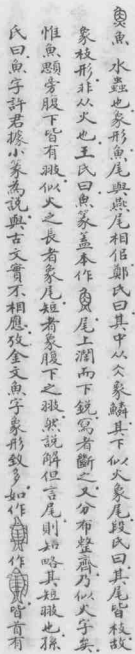 魚 水蟲也象形魚尾與燕尾相佀鄭氏曰其中从仌象鱗其下似火象尾段氏曰其尾皆枝故
象枝形非从火也王氏曰魚篆蓋本作 尾上濶而下銳寫者斷之又分布整齊乃似火字矣
惟魚顋旁腹下皆有翅似火之長者象尾短者象腹下之翅然說解但言尾則姑略其短翅也孫
氏曰魚字許君據小篆為說與古文實不相應攷金文魚字象形致多如作 作 皆首有